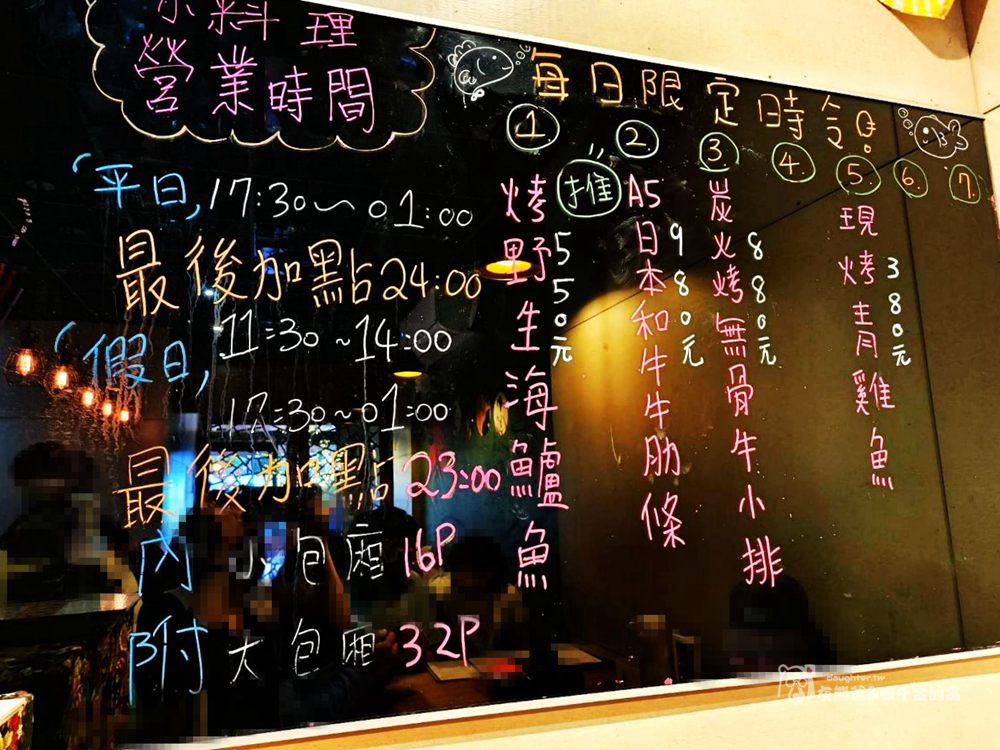 料理
營業時間
平日,17:30~01:00
最後加點24:00
假日,11:30~14:00
17:30~01:00
最後加點23:00
內 小包廂16P
附 大包廂32P
每日限定時令!
①
烤野生海鱸魚
550元
②
推
A5日本和牛牛肋條
980元
③
炭火烤無骨牛小排
880元
④
⑤
現烤青雞魚
380元
⑥
⑦
daughter.tw